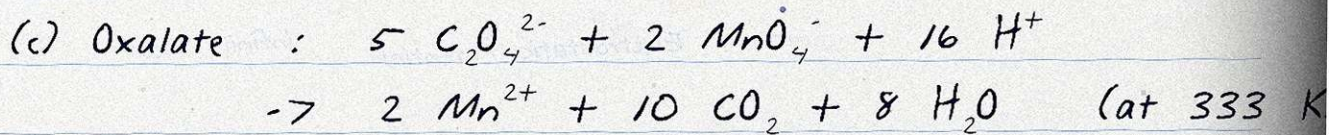 (c) Oxalate : 5 C₂O₄²⁻ + 2 MnO₄⁻ + 16 H⁺
-> 2 Mn²⁺ + 10 CO₂ + 8 H₂O (at 333 K